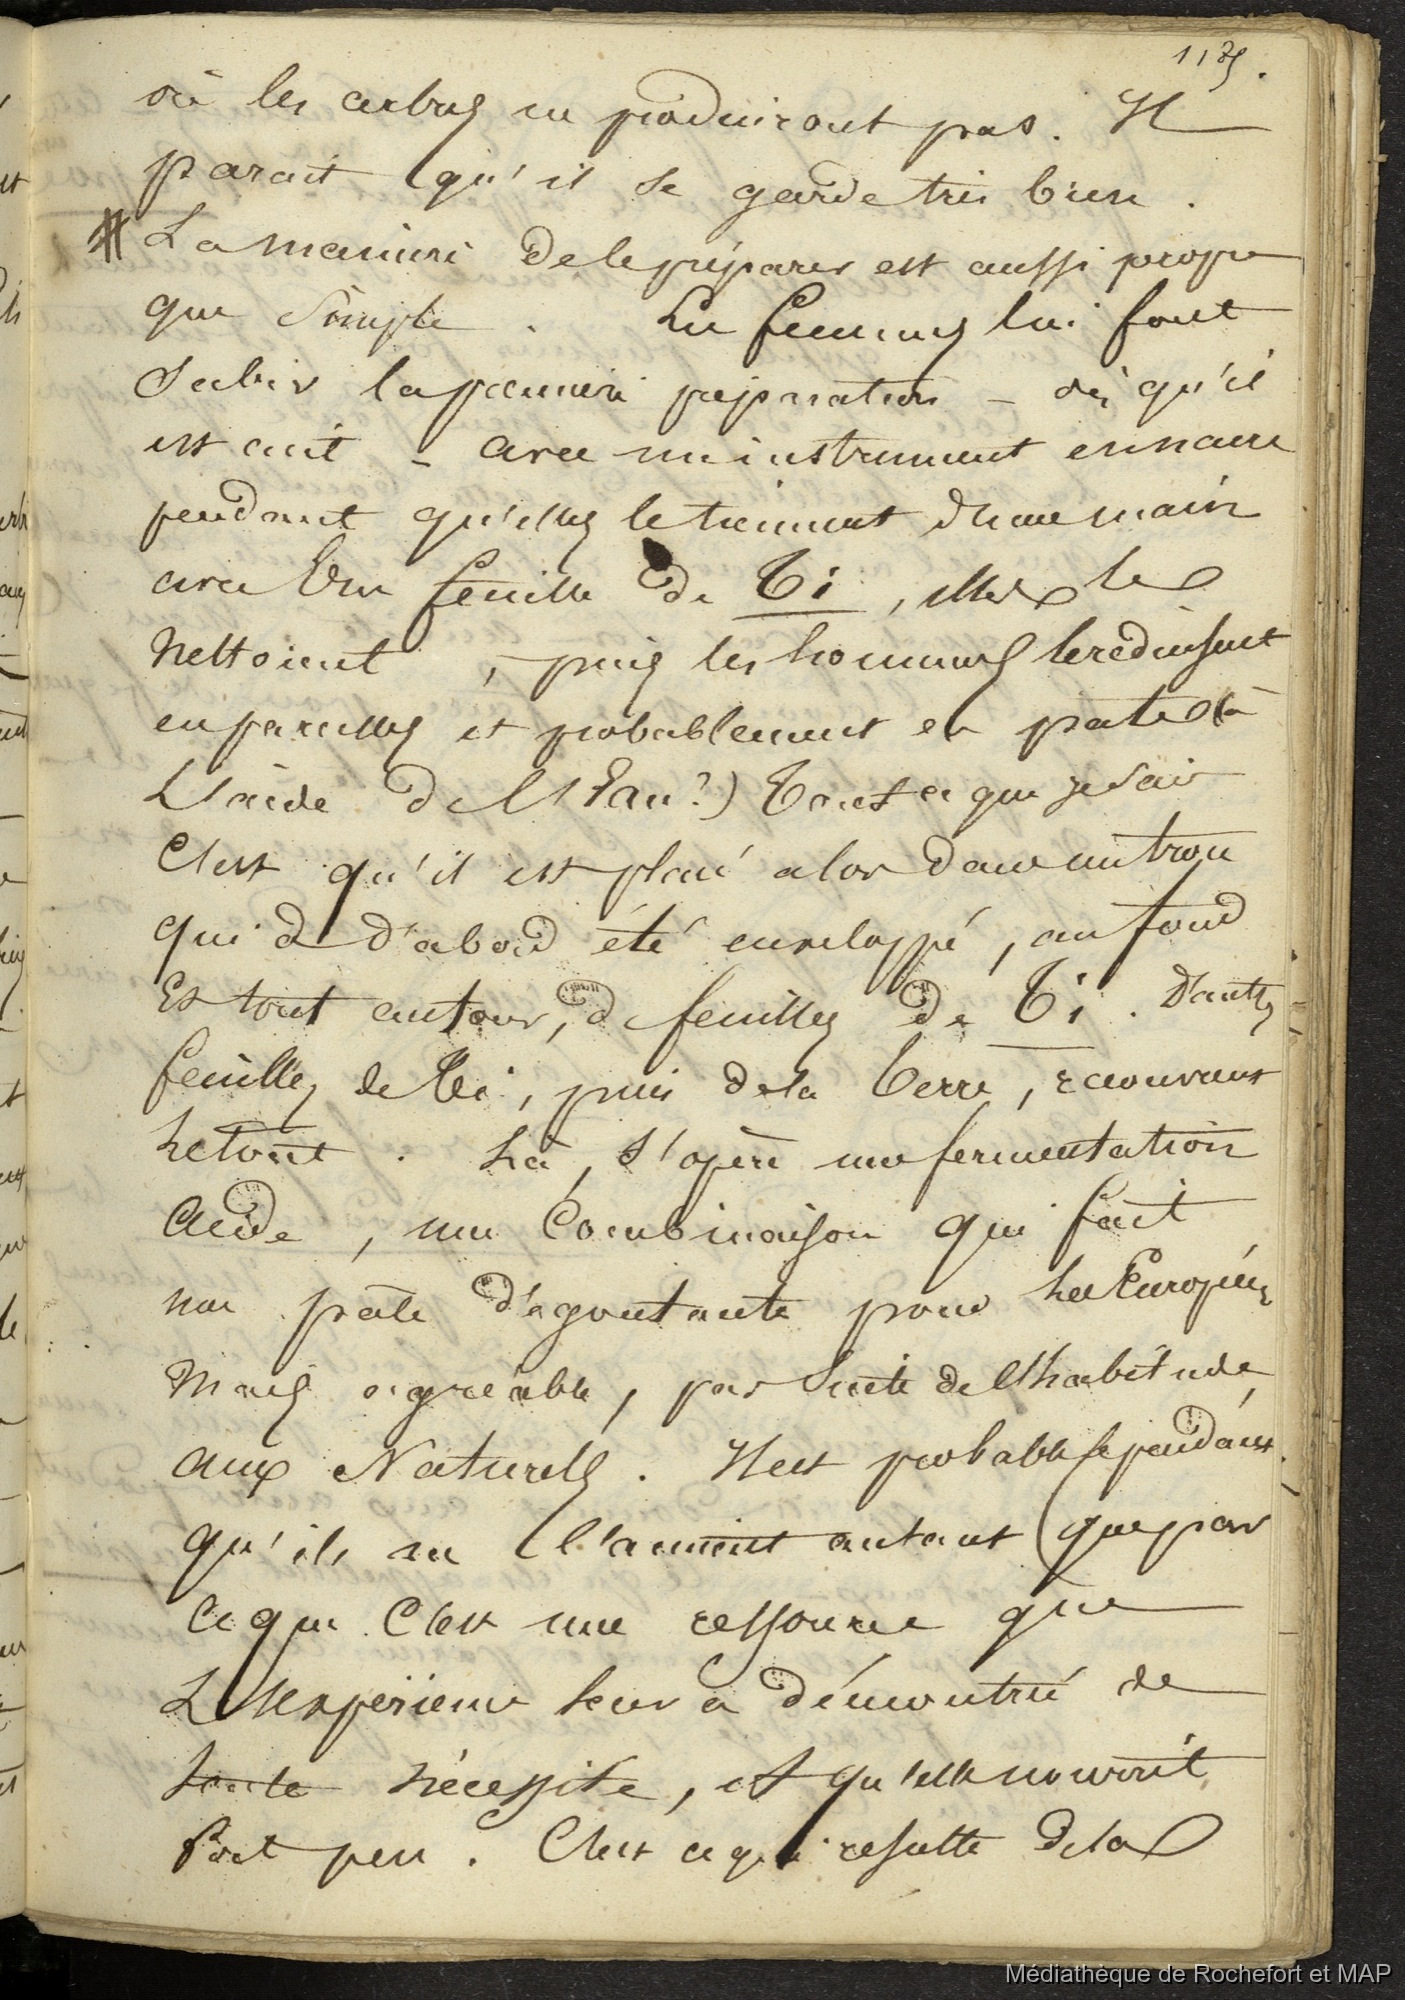 1125.
où les arbres ne produiront pas. Il
parait qu'il se garde très bien.
# La manière de le préparer est aussi propre
que Simple. Les femmes lui font
Subir la premiere préparation – dès qu'il
est cuit – avec un instrument en nacre
pendant qu'elles le tiennent d'une main
avec Une feuille de Ti, elles le
Nettoient, puis les hommes le reduisent
en parcelles et probablement en pate (à
L'aide de l'Eau?) Tout ce que je sais
C'est qu'il est placé alors dans un trou
qui a d'abord été enveloppé, au fond
Et tout autour, de feuilles de Ti. D'autres
feuilles de Ti, puis de la Terre, recouvrent
le tout. Là, s'opère une fermentation
Acide, une Combinaison qui fait
une pâte dégoutante pour les Européens
Mais agréable, par Suite de l'habitude,
aux Naturels. Il est probable cependant
qu'ils ne l'aiment autant que par
ce que C'est une ressource que
L'expérience leur a démontré de
toute nécessite, et qu'elle nourrit
fort peu. C'est ce qui résulte de la
Médiathèque de Rochefort et MAP